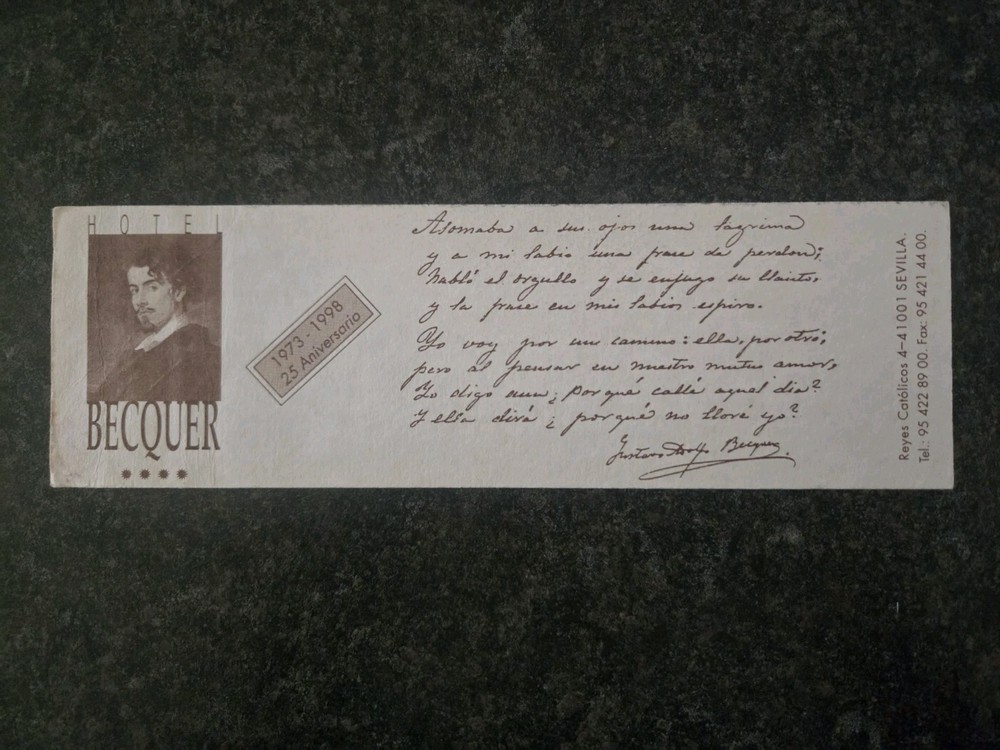 HOTEL
BECQUER
1973 - 1998
25 Aniversario
Asomaba a sus ojos una lagrima
y a mi labio una frase de perdon;
habló el orgullo y se enjugo su llanto,
y la frase en mis labios espiro.
Yo voy por un camino: ella, por otro;
pero al pensar en nuestro mutuo amor,
Yo digo aun ¿Porqué callé aquel dia?
Y ella dirá ¿porqué no lloré yo?
Gustavo Adolfo Becquer
Reyes Católicos 4–41001 SEVILLA.
Tel.: 95 422 89 00. Fax: 95 421 44 00.